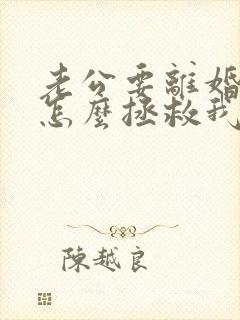 老公要離婚
怎麼拯救我
陳越良